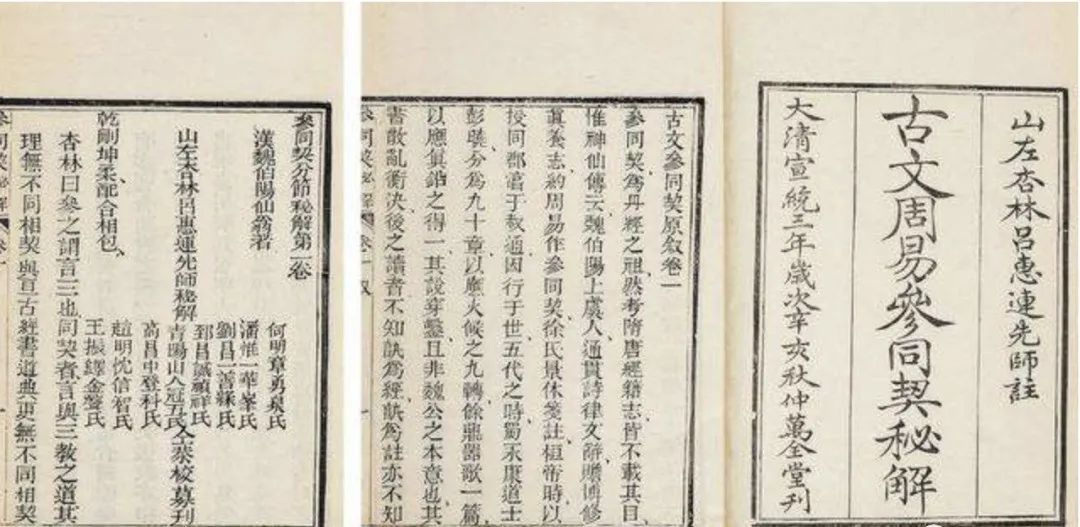 山左杏林呂惠連先師註
古文周易參同契秘解
大清宣統三年歲次辛亥秋仲萬全堂刊
古文參同契原敘卷一
參同契、為丹經之祖、然考隋唐經籍志、皆不載其目、
惟神仙傳云、魏伯陽上虞人、通貫詩律、文辭贍博、修
眞養志、約周易作參同契、徐氏景休箋註、桓帝時、以
授同郡淳于叔通、因行于世、五代之時、蜀永康道士
彭曉、分為九十章、以應火候之九轉、餘鼎器歌一篇、
以應眞鉛之得一、其說穿鑿、且非魏公之本意也、其
書散亂衡決、後之讀者、不知孰為經、孰為註、亦不知
參同契分節秘解第二卷
漢魏伯陽仙翁著
山左杏林呂惠連先師秘解
何明章勇泉氏
潘惟一華峯氏
劉昌一善蘇氏
郅昌誠禎祥氏
青陽山人冠五氏仝叅校募刊
高昌中登科氏
趙明忱信智氏
王振鐸金聲氏
乾剛坤柔、配合相包、
杏林曰參之謂言三也同契者言與三教之道其
理無不同相契與亘古經書道典更無不同相契